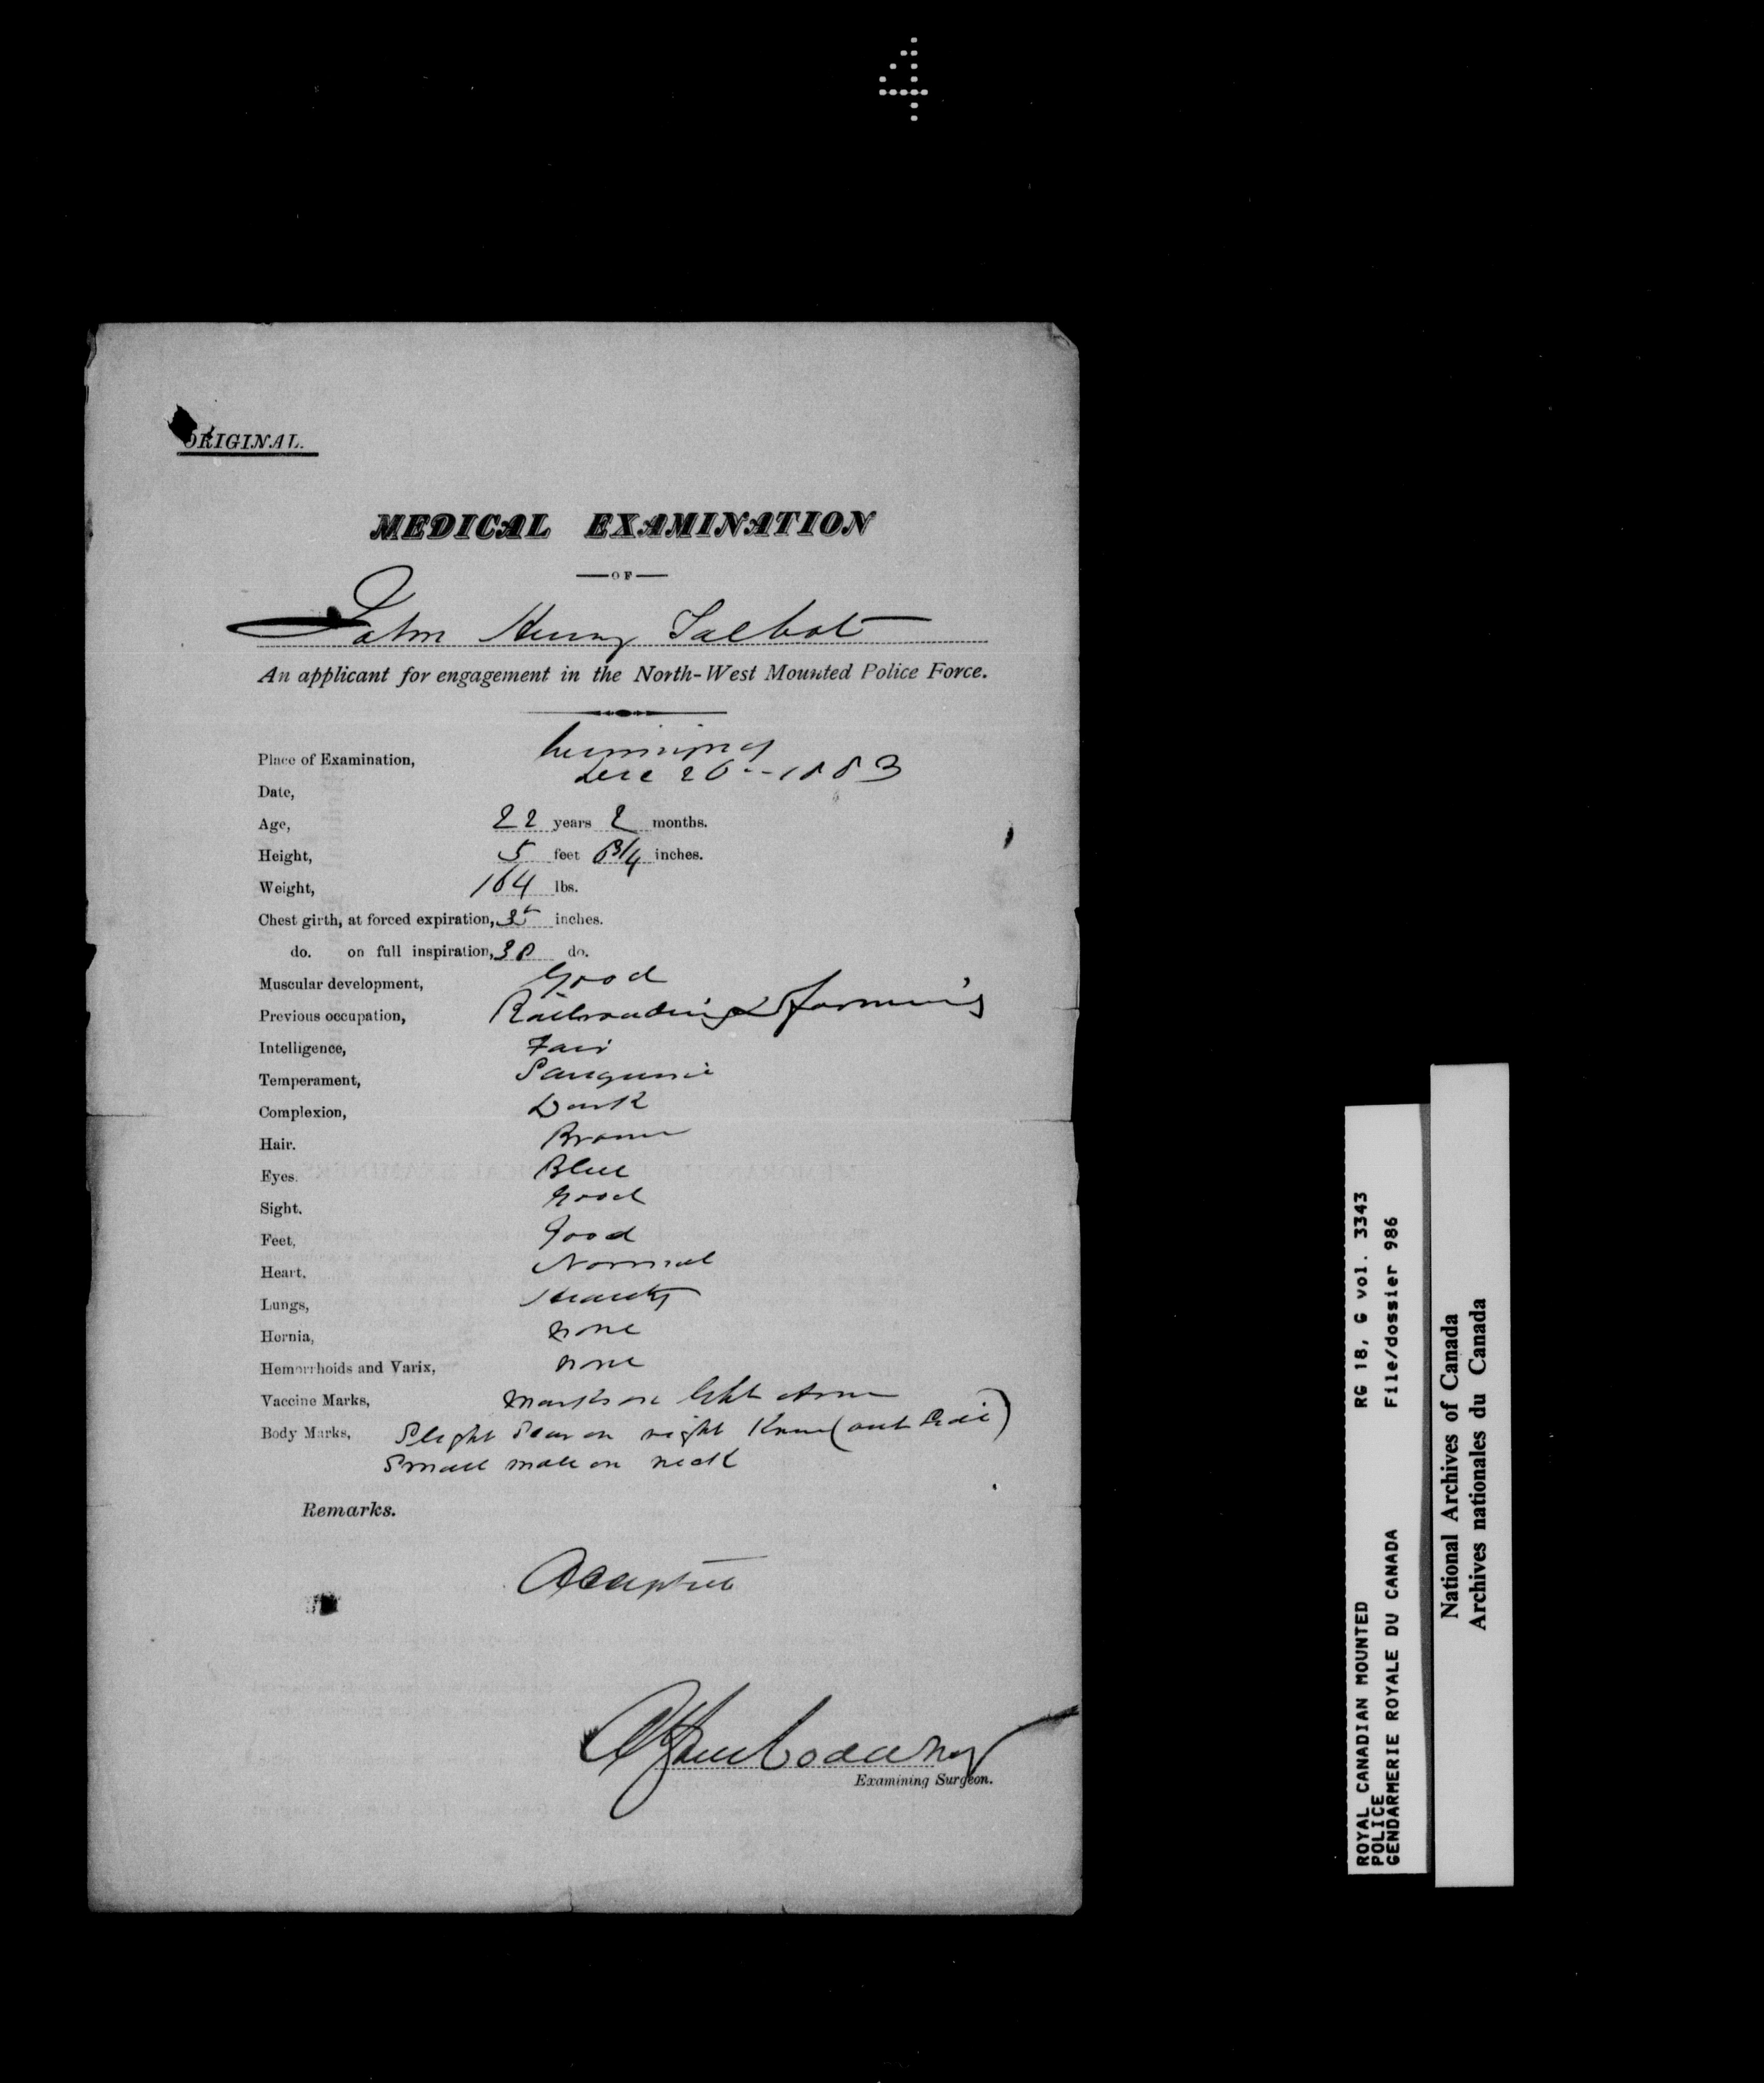 4
ORIGINAL.
MEDICAL EXAMINATION
OF
John Henry Talbot
An applicant for engagement in the North-West Mounted Police Force.
Place of Examination, Winnipeg
Date, Dec 26 1883
Age, 22 years 2 months.
Height, 5 feet 6 3/4 inches.
Weight, 164 lbs.
Chest girth, at forced expiration, 35 inches.
do. on full inspiration, 38 do.
Muscular development, Good
Previous occupation, Railroading & farming
Intelligence, Fair
Temperament, Sanguine
Complexion, Dark
Hair. Brown
Eyes. Blue
Sight. Good
Feet, Good
Heart, Normal
Lungs, Healthy
Hernia, None
Hemorrhoids and Varix, None
Vaccine Marks, Marks on left Arm
Body Marks, Slight Scar on right Knee (out side)
Small mole on neck
Remarks.
Accepted
Examining Surgeon.
ROYAL CANADIAN MOUNTED RG 18, G vol. 3343
POLICE
GENDARMERIE ROYALE DU CANADA File/dossier 986
National Archives of Canada
Archives nationales du Canada